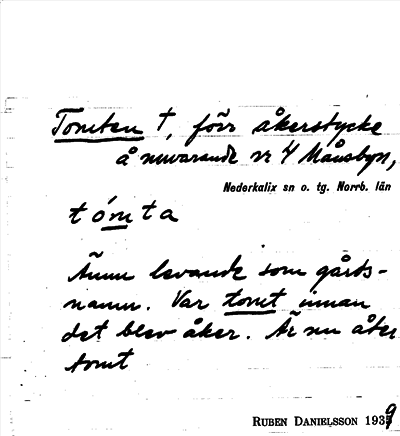 Tomten †, förr åkerstycke
å nuvarande nr 4 Månsbyn,
Nederkalix sn o. tg. Norrb. län
tómta
Ännu levande som gårds-
namn. Var tomt innan
det blev åker. Är nu åter
tomt
RUBEN DANIELSSON 1939